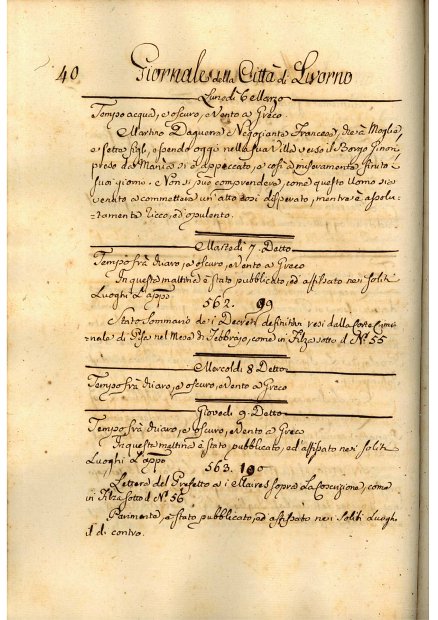 40
Giornale della Città di Livorno
Lunedì 6 Marzo
Tempo acqua, e oscuro, e Vento a Greco
Martino Daguena Negoziante Francese, che à Moglie,
e sette figli, essendo oggi nella sua Villa verso il Borgo
preso da Manìa si è appeccato, e così à miseramente finito i
suoi giorni. Non si può comprendere, come questo Uomo sia
venuto a commettere un'atto così disperato, mentre è assolu-
tamente ricco, ed opulento.
Martedì 7. Detto
Tempo frà chiaro, e oscuro, e Vento a Greco
In questa mattina è stato pubblicato, ed affissato nei soliti
Luoghi L'appo
562. 99
Stato Sommario dei Decreti definitivi resi dalla Corte Crimi-
nale di Pisa nel Mese di Febbrajo, come in Filza sotto d. N.º 55
Mercoldì 8 Detto
Tempo frà chiaro, e oscuro, e Vento a Greco
Giovedì 9. Detto
Tempo frà chiaro, e oscuro, e Vento a Greco
In questa mattina è stato pubblicato, ed affissato nei soliti
Luoghi L'appo
563. 100
Lettera del Prefetto a i Maires sopra La Coscrizione, come
in Filza sotto d. N.º 56
Parimente, è stato pubblicato, ed affissato nei Soliti Luoghi
il di contro.